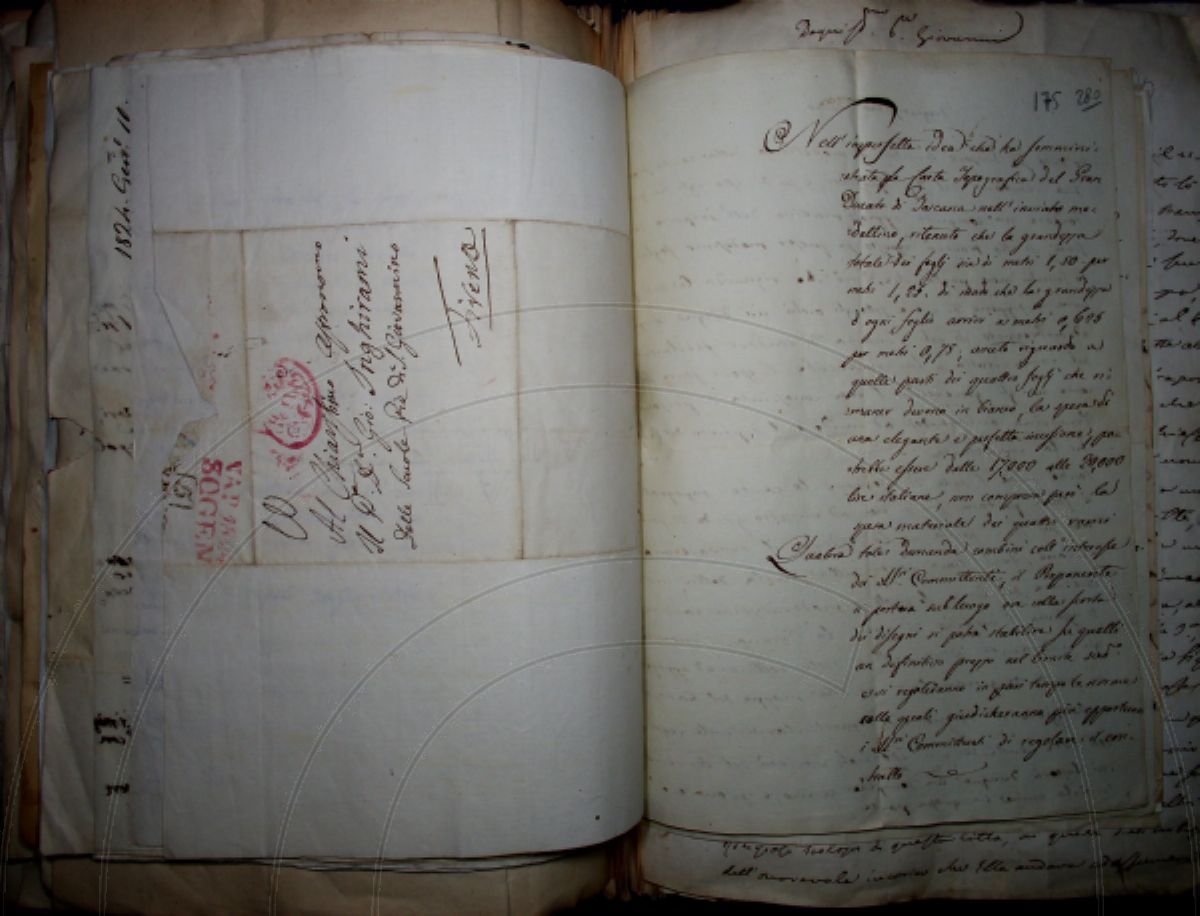 1824. Gen.º 11.
Al Chiarissimo Astronomo
Il P. D. Gio: Inghirami
delle Scuole Pie di S. Giovannino
Firenze
S. Giovanni
175 280
Nell'imperfetta idea che ha sommini-
strata la Carta Topografica del Gran
Ducato di Toscana nell'inviato mo-
dellino, ritenuto che la grandezza
totale dei fogli sia di metri 1,50 per
metri 1,20. di modo che la grandezza
d'ogni foglio arrivi a metri 0,605
per metri 0,75, avuto riguardo a
quelle parti dei quattro fogli che ri-
maner devono in bianco, la spesa di
una elegante e perfetta incisione, po-
trebbe essere dalle 17000 alle 20000
lire italiane, non compresa però la
spesa materiale dei quattro rami
Qualora tale dimanda combini coll'interesse
dei Sig.ri Committenti, il Proponente
si porterà sul luogo ove colla scorta
dei disegni si potrà stabilire fra quelli
un definitivo prezzo nel limite
e si regoleranno in pari tempo le norme
colle quali giudicheranno più opportuno
i Sig.ri Committenti di regolare il con-
tratto
di questa città,
dell'onorevole incarico che Ella andava ad